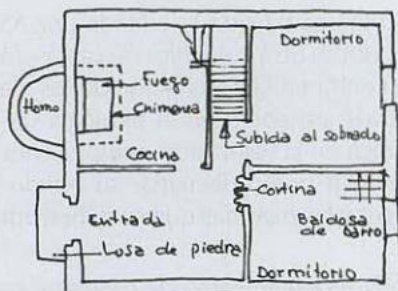 Dormitorio
Fuego
Horno
Chimenea
Subida al sobrado
Cocina
Cortina
Entrada
Baldosa
de barro
Losa de piedra
Dormitorio